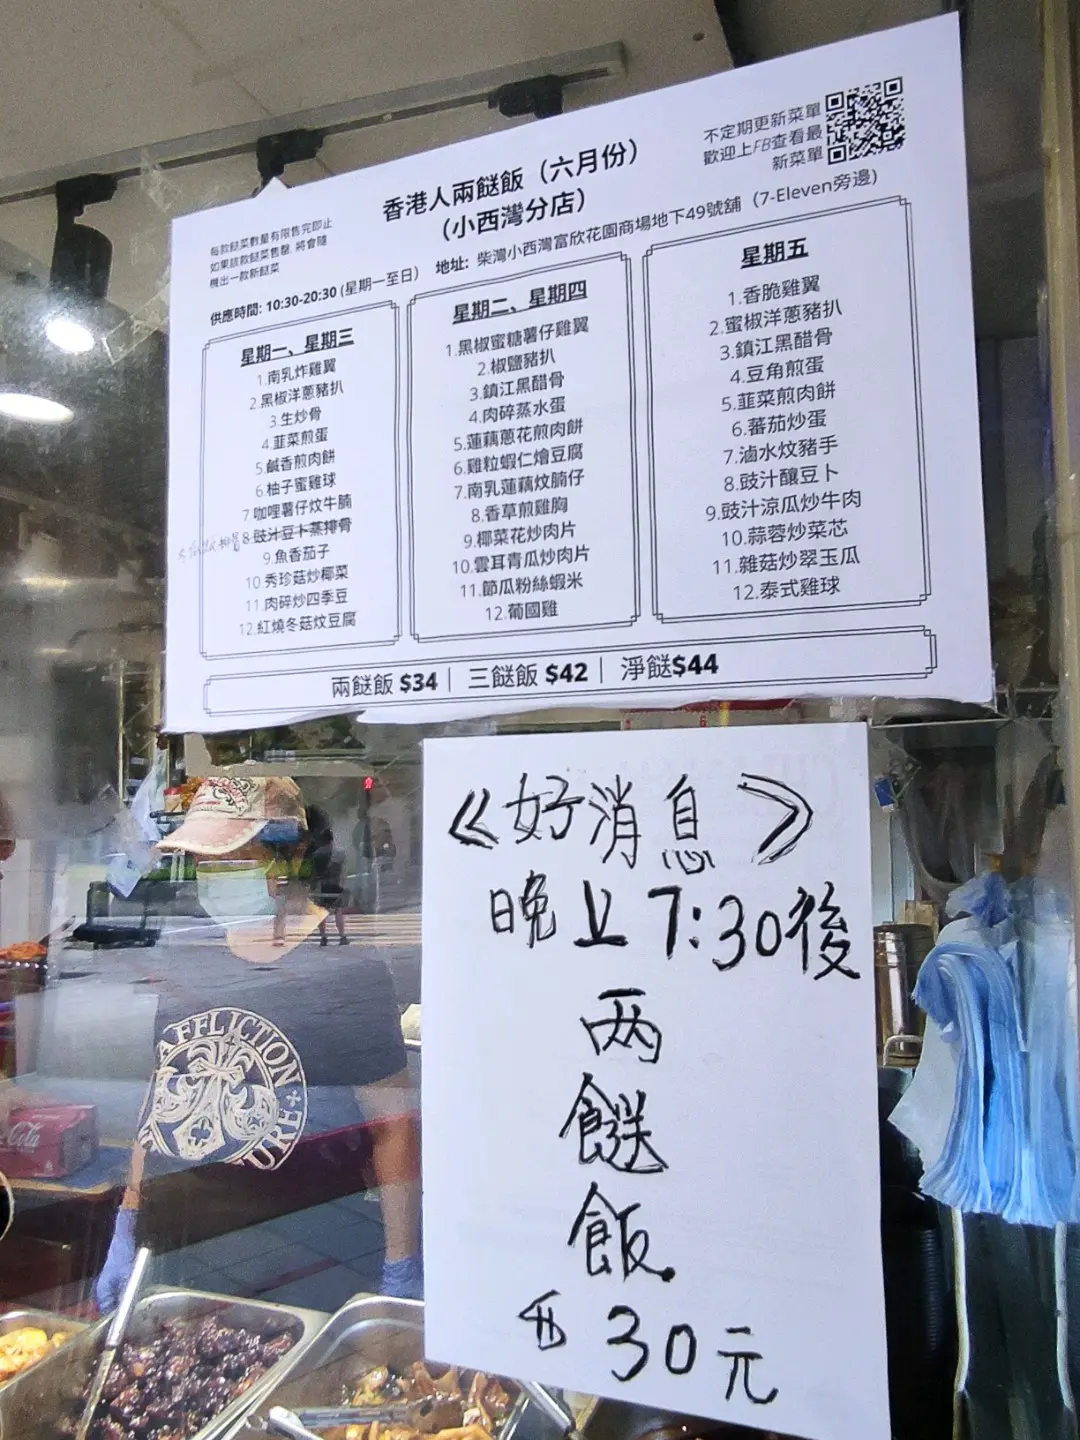 不定期更新菜單
歡迎上FB查看最
新菜單
香港人兩餸飯（六月份）
（小西灣分店）
每款餸菜數量有限售完即止
如果該款餸菜售罄, 將會隨
機出一款新餸菜
供應時間: 10:30-20:30 (星期一至日) 地址: 柴灣小西灣富欣花園商場地下49號舖（7-Eleven旁邊)
星期一、星期三
1.南乳炸雞翼
2.黑椒洋蔥豬扒
3.生炒骨
4.韮菜煎蛋
5.鹹香煎肉餅
6.柚子蜜雞球
7.咖哩薯仔炆牛腩
8.豉汁豆卜蒸排骨
9.魚香茄子
10.秀珍菇炒椰菜
11.肉碎炒四季豆
12.紅燒冬菇炆豆腐
星期二、星期四
1.黑椒蜜糖薯仔雞翼
2.椒鹽豬扒
3.鎮江黑醋骨
4.肉碎蒸水蛋
5.蓮藕蔥花煎肉餅
6.雞粒蝦仁燴豆腐
7.南乳蓮藕炆腩仔
8.香草煎雞胸
9.椰菜花炒肉片
10.雲耳青瓜炒肉片
11.節瓜粉絲蝦米
12.葡國雞
星期五
1.香脆雞翼
2.蜜椒洋蔥豬扒
3.鎮江黑醋骨
4.豆角煎蛋
5.韮菜煎肉餅
6.蕃茄炒蛋
7.滷水炆豬手
8.豉汁釀豆卜
9.豉汁涼瓜炒牛肉
10.蒜蓉炒菜芯
11.雜菇炒翠玉瓜
12.泰式雞球
兩餸飯 $34｜ 三餸飯 $42｜ 淨餸$44
《好消息》
晚上7:30後
两
餸
飯
$30元
AFFLICTION
Cola